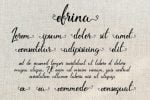 efrina
Lorem ipsum dolor sit amet
consectetur adipisicing elit
sed do eiusmod tempor incididunt ut labore et dolore
magna aliqua. Ut enim ad minim veniam, quis
nostrud exercitation ullamco laboris nisi ut
aliquip ex ea commodo consequat